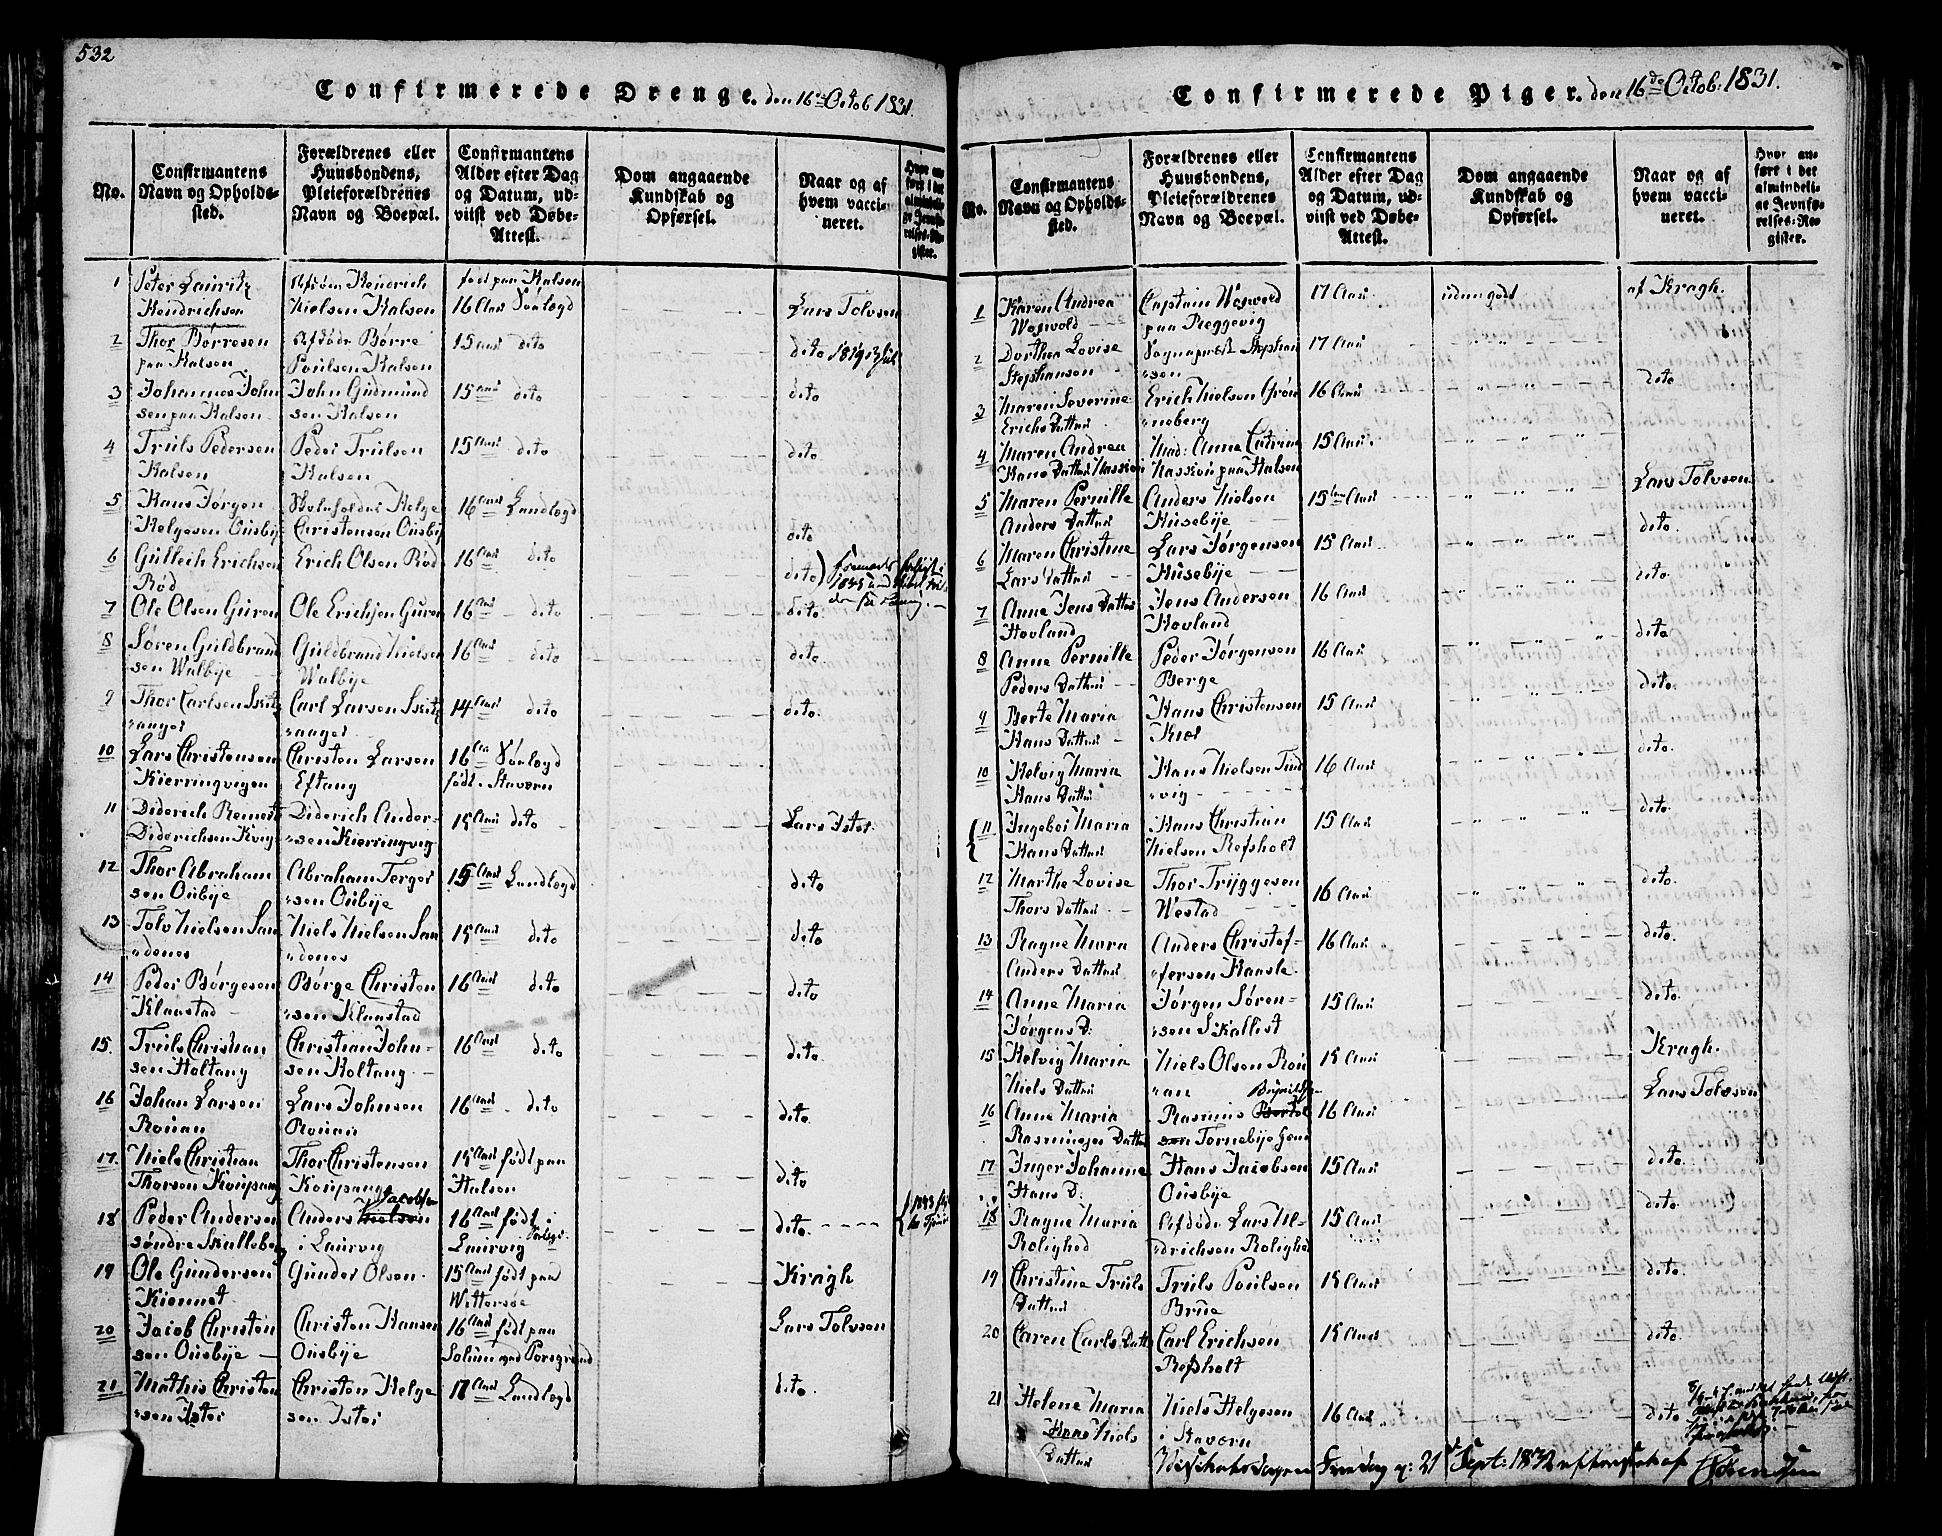 532
Confirmerede Drenge. den 16de Octob 1831.
No.
Confirmantens Navn og Opholds-sted.
Forældrenes eller Huusbondens, Pleieforældrenes Navn og Boepæl.
Confirmantens Alder efter Dag og Datum, ud-viist ved Døbe-Attest.
Dom angaaende Kundskab og Opførsel.
Naar og af hvem vacci-neret.
1 Peter Lauritz Afdøde Hendrich født paa Halsen
Hendrichsen Nielsen Halsen 16 Aar Lars Tolvsen
2 Thor Børresen Afdøde Børre 15 Aar dito dito 1819
paa Halsen Poulsen Halsen
3 Johannes John John Gudmund 15 Aar dito dito
sen paa Halsen sen Halsen
4 Truls Pedersen Peder Trulsen 15 Aar dito dito
Halsen Halsen
5 Hans Jørgen Helge 16 Aar Landlægd
Helgesen Ousbye Christensen Ousby dito
6 Gulleich Erichsen Erich Olsen Rød 16 Aar dito dito
Rød
7 Ole Olsen Guren Ole Erichsen Guren 16 Aar dito dito
8 Søren Guldbrand Guldbrand Nielsen 16 Aar dito dito
sen Walbye Walbye
9 Thor Carlsen Carl Larsen 14 Aar dito dito.
10 Lars Christensen Christen Larsen 16 Aar
Kierringvigen Eftang født Stavern
11 Diderich Diderich Ander- 15 Aar dito Lars Ister
Diderichsen sen Kierringvig
12 Thor Abraham Abraham Terges 15 Aar Landlægd dito
sen Ousbye sen Ousbye
13 Tolv Nielsen San Niels Nielsen San 15 Aar dito dito
denes denes
14 Peder Børgesen Børge Christen 16 Aar dito dito
Klaastad sen Klaastad
15. Truls Christian Christian John- 16 Aar dito dito
sen Holtang sen Holtang
16 Johan Larsen Lars Johnsen 16 Aar dito dito.
Rouan Rouan
17. Niels Christian Thor Christensen 15 Aar født paa dito
Thorsen Koupang Koupang Halsen
18 Peder Andersen Anders Nielsen Jacobsen 16 Aar født i dito
søndre Skalleberg i Laurvig Laurvig
19 Ole Gundersen Gunder Olsen 15 Aar født paa Kragh
20 Jacob Christen Christen Hansen 16 Aar født paa Lars Tolvsen
sen Ousbye Ousbye Solum ved Porsgrund
21 Mathis Christen Christen Helge 17 Aar Landlægd dito.
sen Ister sen Ister
Confirmerede Piger. den 16de Octob: 1831.
No.
Confirmantens Navn og Opholds-sted.
Forældrenes eller Huusbondens, Pleieforældrenes Navn og Boepæl.
Confirmantens Alder efter Dag og Datum, ud-viist ved Døbe-Attest.
Dom angaaende Kundskab og Opførsel.
Naar og af hvem vacci-neret.
Hvor an-ført i det almindeli-ge Jevnfø-relses-Re-gister.
1 Karen Andrea Captain Wosvold 17 Aar af Kragh.
Wosvold paa Reggevig
2 Dorthea Lovise Sognepræst Stephan 17 Aar
Stephansen sen
3 Maren Severine Erich Nielsen Grøn 16 Aar dito
Erichs Datter neberg
4 Maren Andrea Mad: Anne Catrine 15 Aar
Hans Datter paa Halsen Lars Tolvsen
5 Maren Pernille Anders Nielsen 15 Aar dito.
Anders Datter Husebye
6 Maren Christine Lars Jørgensen 15 Aar dito.
Lars Datter Husebye
7 Anne Jens Datter Jens Andersen 16 Aar dito
Hovland Hovland
8 Anne Pernille Peder Jørgensen 16 Aar dito
Peders Datter Berge
9 Berte Maria Hans Christensen 15 Aar dito.
Hans Datter
10 Helvig Maria Hans Nielsen Tind 16 Aar dito.
Hans Datter vig
11 Ingebor Maria Hans Christian 15 Aar
Hans Datter Nielsen Refsholt
12 Marthe Lovise Thor Tryggesen 16 Aar dito.
Thors Datter Westad
13 Ragne Mara Anders Christof- 16 Aar dito.
Anders Datter fersen Kaasle
14 Anne Maria Jørgen Søren- 15 Aar dito.
Jørgens D: sen Skallist
15 Helvig Maria Niels Olsen Rou 15 Aar Kragh.
Niels Datter an Lars Tolvsen
16 Anne Maria Rasmus 16 Aar
Rasmuses Datter Tornebye
17 Inger Johanne Hans Jacobsen 15 Aar dito.
Hans D. Ousbye
18 Ragne Maria Afdøde Lars Ul- 15 Aar dito.
Rolighed drichsen Rolighed
19 Christine Truls Truls Poulsen 15 Aar dito.
Datter Brue
20 Caren Carls Datter Carl Erichsen 15 Aar dito.
Refsholt
21 Helene Maria Niels Helgesen 16 Aar dito
Niels i Stavern
Datter Fredag 21 Sept: 1832